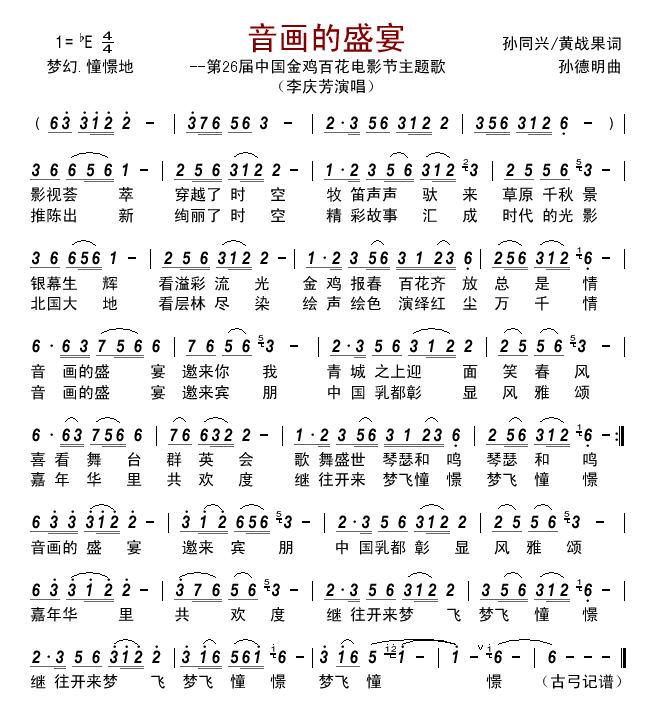 音画的盛宴
1= ♭E 4/4
孙同兴/黄战果词
梦幻.憧憬地
--第26届中国金鸡百花电影节主题歌
孙德明曲
(李庆芳演唱)
( 63 312 2 - | 376 56 3 - | 2·3 56 312 2 | 356 312 6 - ) |
3 6 6 5 6 1 - | 2 5 6 312 2 - | 1·2 3 56 312 3 | 2 5 5 6 3 - |
影视荟 萃 穿越了 时 空 牧 笛声声 驮 来 草原 千秋 景
推陈出 新 绚丽了 时 空 精 彩故事 汇 成 时代 的光 影
3 6 656 1 - | 2 5 6 312 2 - | 1·2 3 56 3 1 23 6 | 2 56 312 6 - |
银幕生 辉 看溢彩 流 光 金 鸡 报春 百花齐 放 总 是 情
北国大 地 看层林 尽 染 绘 声 绘色 演绎红 尘 万 千 情
6 · 63 7 5 6 6 | 7 6 5 6 3 - | 2·3 5 6 3 1 2 2 | 2 5 5 6 3 - |
音 画的盛 宴 邀来你 我 青 城 之上迎 面 笑 春 风
音 画的盛 宴 邀来宾 朋 中 国 乳都彰 显 风 雅 颂
6 · 63 756 6 | 76 632 2 - | 1·2 3 56 3 1 23 6 | 2 56 312 6 - :||
喜 看 舞 台 群 英 会 歌 舞盛世 琴瑟和 鸣 琴瑟 和 鸣
嘉 年 华 里 共 欢 度 继 往开来 梦飞憧 憬 梦飞 憧 憬
6 3 3 312 2 - | 3 1 2 656 3 - | 2·3 5 6 312 2 | 2 5 5 6 3 - |
音画的 盛 宴 邀来 宾 朋 中 国乳都 彰 显 风 雅 颂
6 3 3 1 2 2 - | 3 7 6 5 6 3 - | 2·3 5 6 312 2 | 3 56 312 6 - |
嘉年华 里 共 欢 度 继 往开来梦 飞 梦飞 憧 憬
2·3 5 6 312 2 | 3 16 561 6 - | 3 16 5 1 - | 1 - 6 - | 6 - - - ||
继 往开来梦 飞 梦飞 憧 憬 梦飞 憧 憬 (古弓记谱)